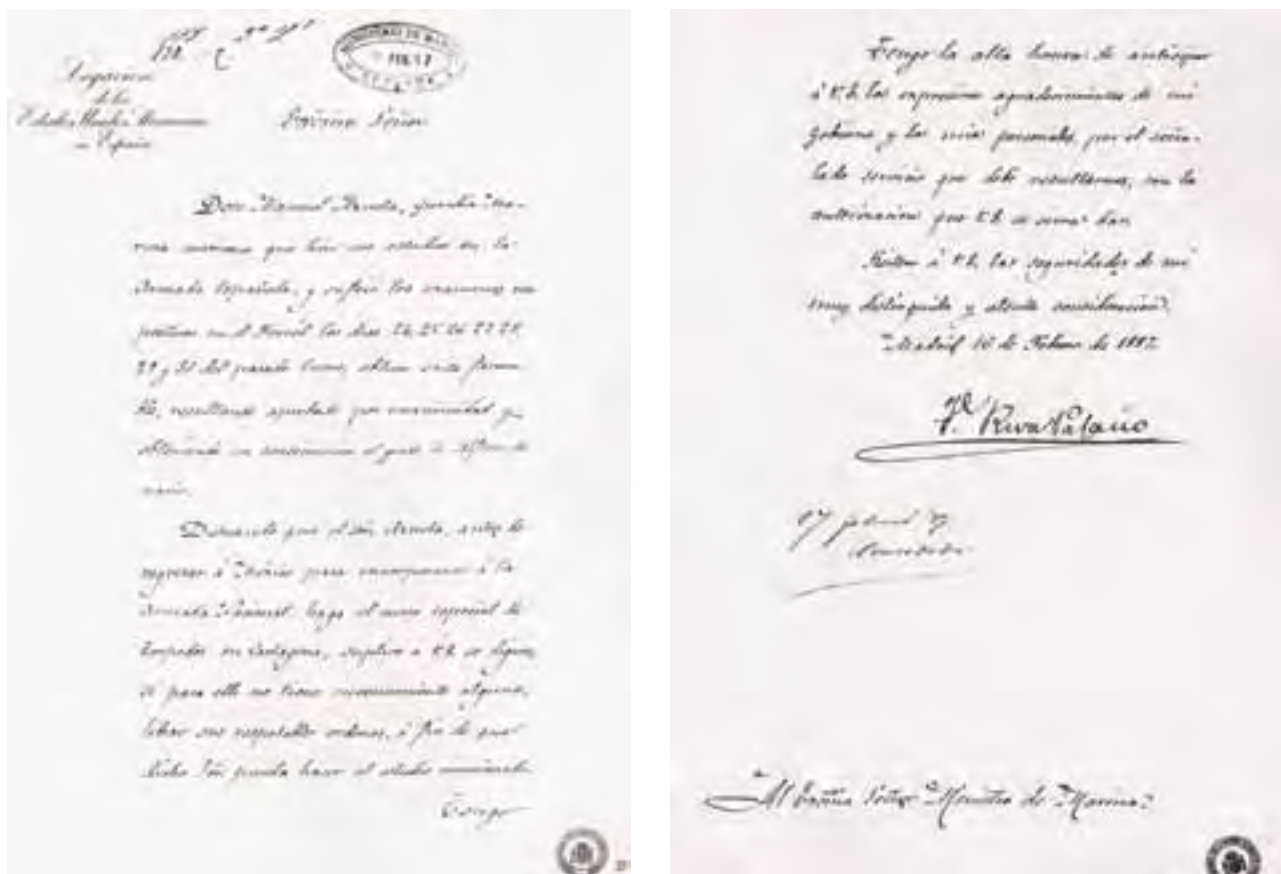 Legación
de los
Estados Unidos Mexicanos
en España
Excmo Señor
Don Manuel Azueta, guardia Ma-
rina mexicano que hizo sus estudios en la
Armada Española, y sufrió los examenes
en el Ferrol los dias 24, 25 26 27 28,
29 y 31 del pasado Enero, obtuvo
resultando aprobado por unanimidad y
obteniendo en consecuencia el grado de Alferez de
navio.
Deseando que el Señ. Azueta, antes de
regresar á México para incorporarse á la
Armada Nacional haga el curso especial de
Torpedos en Cartagena, suplico a V.E. se digne,
si para ello no tiene inconveniente alguno,
librar sus respetables ordenes, á fin de que
dicho Señ. pueda hacer el estudio mencionado.
Tengo
Tengo la alta honra de anticipar
á V.E. las expresivos agradecimientos de mi
Gobierno y los mios personales, por el seña-
lado servicio que debe resultarnos, con la
autorización que V.E. se sirva dar.
Reitero á V.E. las seguridades de mi
muy distinguida y atenta consideración.
Madrid 16 de Febrero de 1887.
V. Riva Palacio
Al Excmo Señor Ministro de Marina